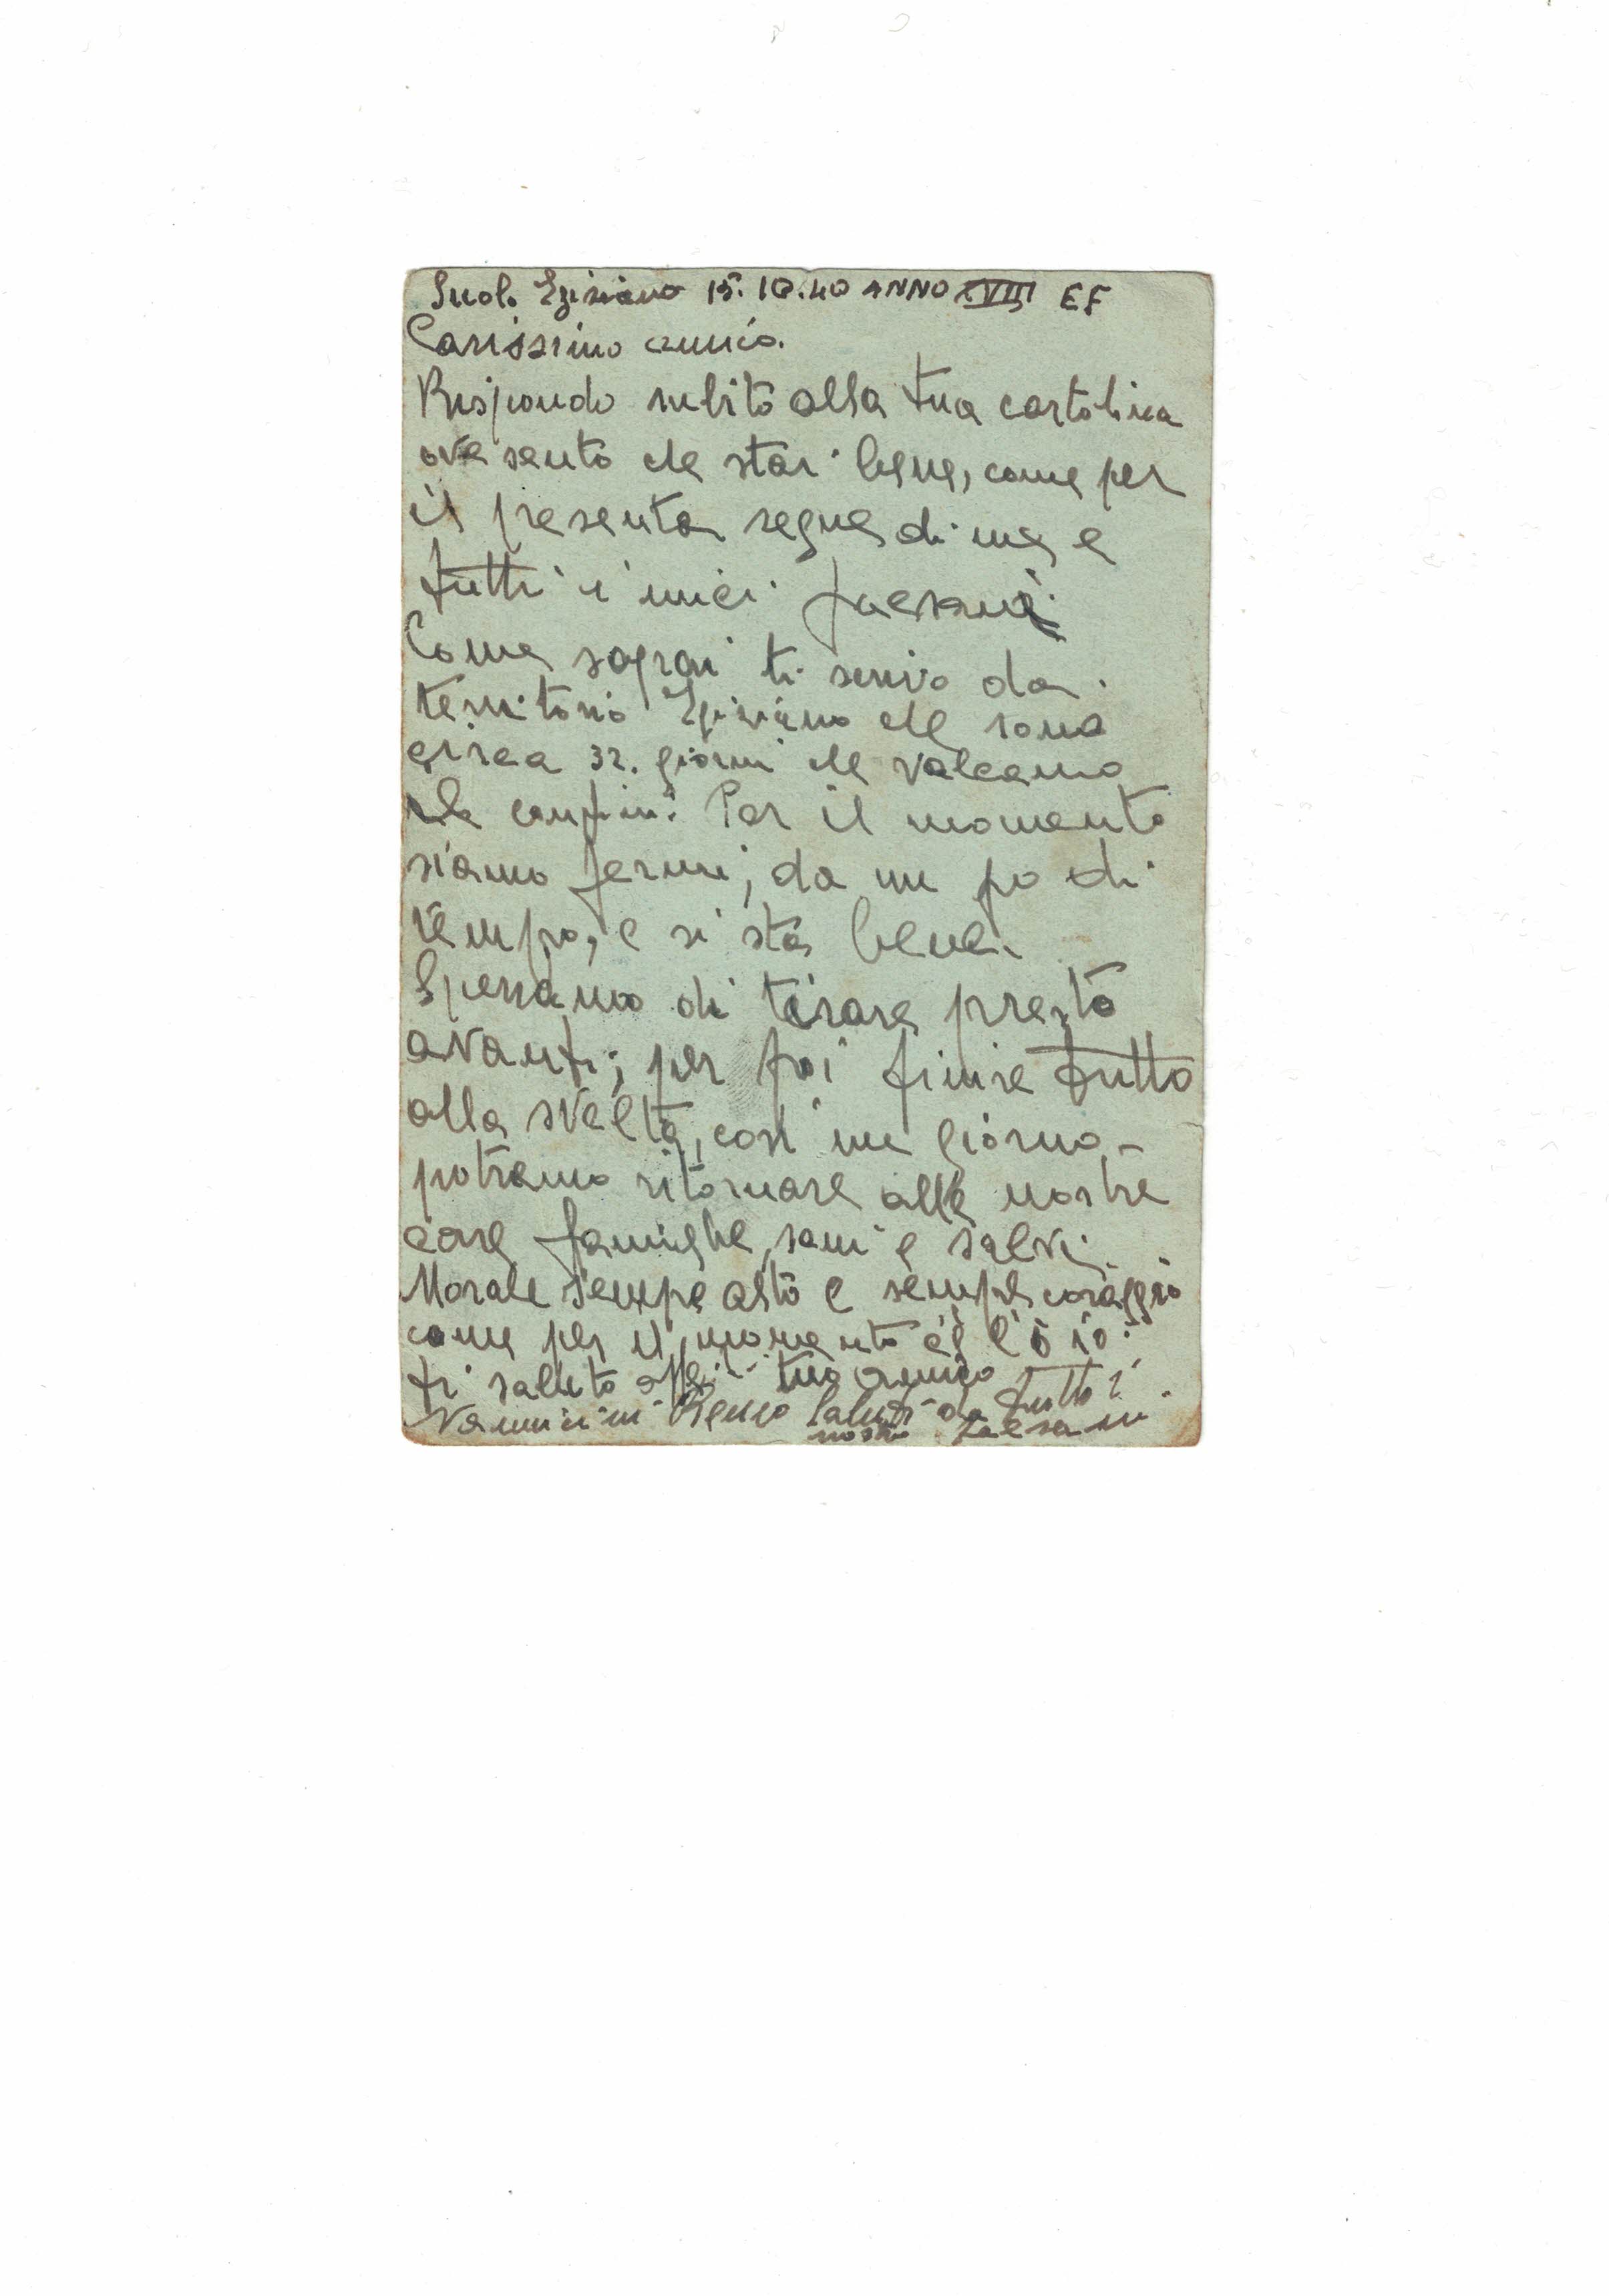 Suolo Egiziano 15.10.40 ANNO XVIII EF
Carissimo amico.
Rispondo subito alla tua cartolina
ove sento che stai bene, come per
il presente segue di me e
tutti i miei paesani
Come saprai ti scrivo da
territorio Egiziano che sono
circa 32. giorni che valcamo
confini. Per il momento
siamo fermi, da un po di
tempo, e si sta bene.
Speriamo di tirare presto
avanti; per poi finire tutto
alla svelta, così un giorno
potremo ritornare alle nostre
care famiglie, sani e salvi.
Morale sempre alto e sempre coraggio
come per il momento ce l'ò io.
ti saluto aff. tuo amico
Vannucini Renzo Saluti da tutti i
nostri paesani